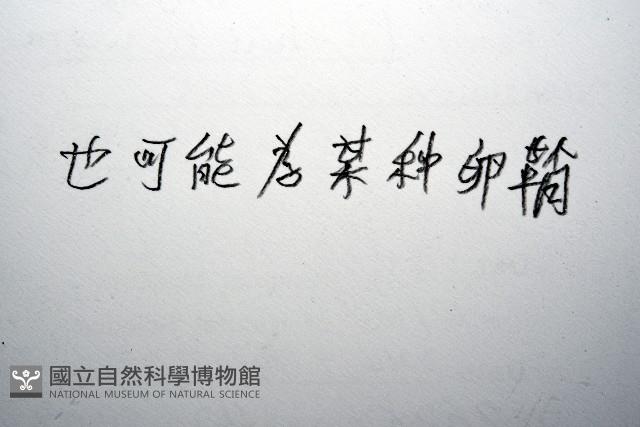 也可能為某种卵鞘
國立自然科學博物館
NATIONAL MUSEUM OF NATURAL SCIENCE